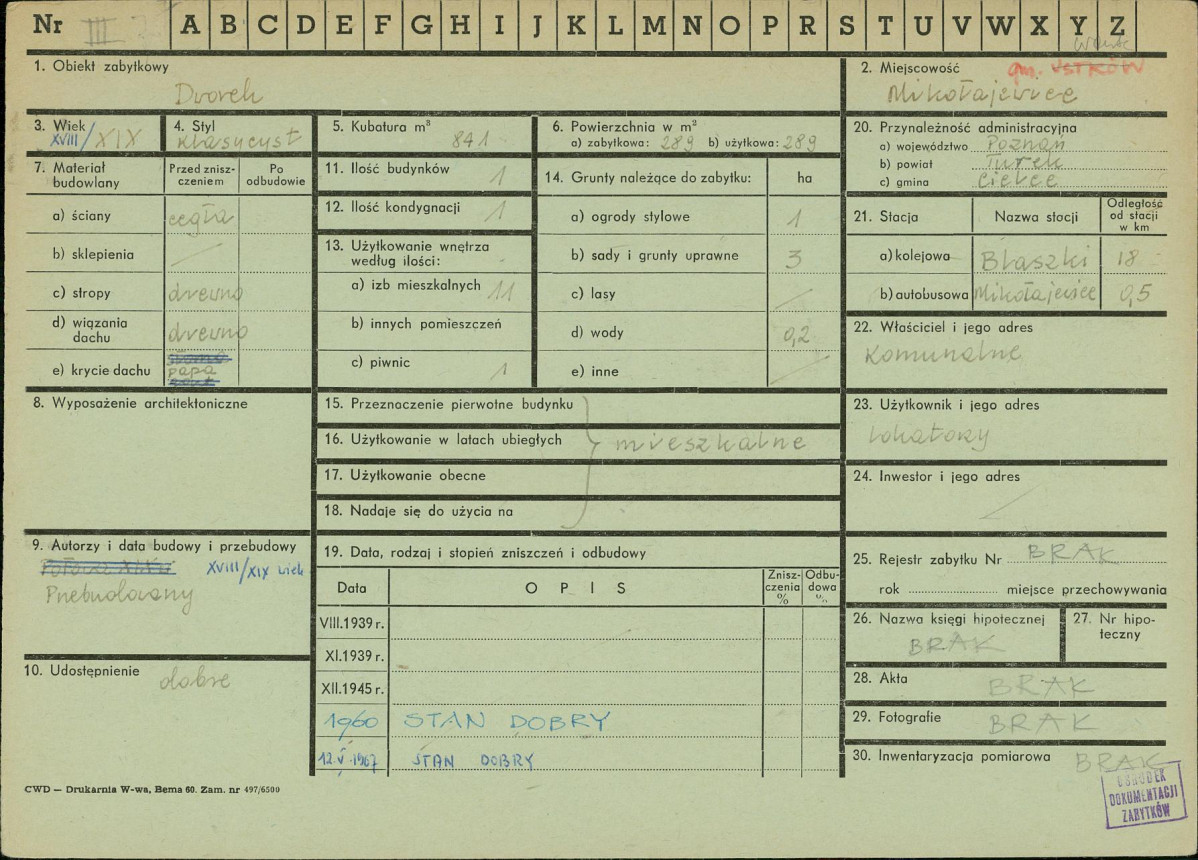 Nr III A B C D E F G H I J K L M N O P R S T U V W X Y Z
1. Obiekt zabytkowy
Dworek
2. Miejscowość
gm. USTKÓW
Mikołajewice
3. Wiek
XVIII/XIX
4. Styl
klasycyst
5. Kubatura m³
841
6. Powierzchnia w m²
a) zabytkowa: 289 b) użytkowa: 289
20. Przynależność administracyjna
a) województwo Poznań
b) powiat Turek
c) gmina Cielce
7. Materiał budowlany
Przed znisz-
czeniem
Po
odbudowie
a) ściany cegła
b) sklepienia /
c) stropy drewno
d) wiązania
dachu drewno
e) krycie dachu papa
11. Ilość budynków 1
12. Ilość kondygnacji 1
13. Użytkowanie wnętrza
według ilości:
a) izb mieszkalnych 11
b) innych pomieszczeń
c) piwnic 1
14. Grunty należące do zabytku: ha
a) ogrody stylowe 1
b) sady i grunty uprawne 3
c) lasy /
d) wody 0,2
e) inne /
21. Stacja Nazwa stocji
Odległość
od stacji
w km
a) kolejowa Błaszki 18
b) autobusowa Mikołajewice 0,5
22. Właściciel i jego adres
Komunalne
8. Wyposażenie architektoniczne
15. Przeznaczenie pierwotne budynku
16. Użytkowanie w latach ubiegłych
mieszkalne
17. Użytkowanie obecne
18. Nadaje się do użycia na
23. Użytkownik i jego adres
Lokatorzy
24. Inwestor i jego adres
/
9. Autorzy i data budowy i przebudowy
XVIII/XIX wiek
Przebudowany
10. Udostępnienie dobre
19. Data, rodzaj i stopień zniszczeń i odbudowy
Data OPIS
Znisz-
czenia
%
Odbu-
dowa
%
VIII.1939 r.
XI.1939 r.
XII.1945 r.
1960 STAN DOBRY
12.V.1967 STAN DOBRY
25. Rejestr zabytku Nr BRAK
rok miejsce przechowywania
26. Nazwa księgi hipotecznej
BRAK
27. Nr hipo-
teczny
28. Akta BRAK
29. Fotografie BRAK
30. Inwentaryzacja pomiarowa BRAK
CWD — Drukarnia W-wa, Bema 60. Zam. nr 497/6500
OŚRODEK
DOKUMENTACJI
ZABYTKÓW